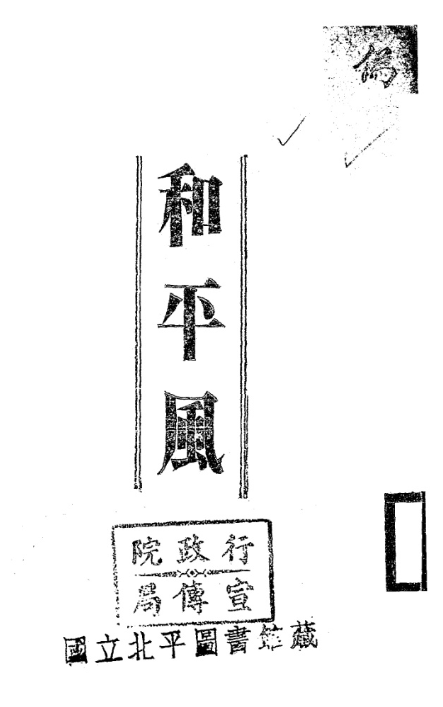 和平風
行政院
宣傳局
國立北平圖書館藏